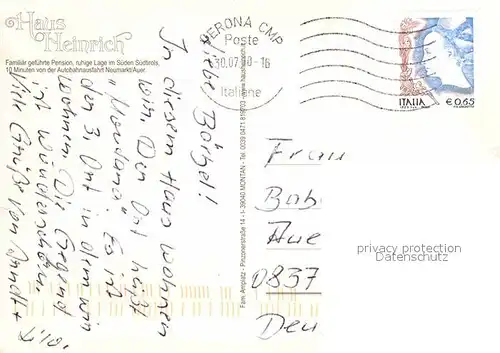 Haus
Heinrich
Familiär geführte Pension, ruhige Lage im Süden Südtirols,
10 Minuten von der Autobahnausfahrt Neumarkt/Auer.
VERONA CMP
Poste
30.07 -16
Italiane
ITALIA € 0,65
Liebe Bärbel!
In diesem Haus wohnen
wir. Der Ort heißt
"Montana". Es ist
der 3. Ort in dem wir
wohnen. Die Gegend
ist wunderschön.
Viele Grüße von
Fam. Amplatz - Pinzonerstraße 14 - I-39040 MONTAN - Tel. 0039 0471 819703
Frau
Bab
Aue
0837
Deu
privacy protection
Datenschutz